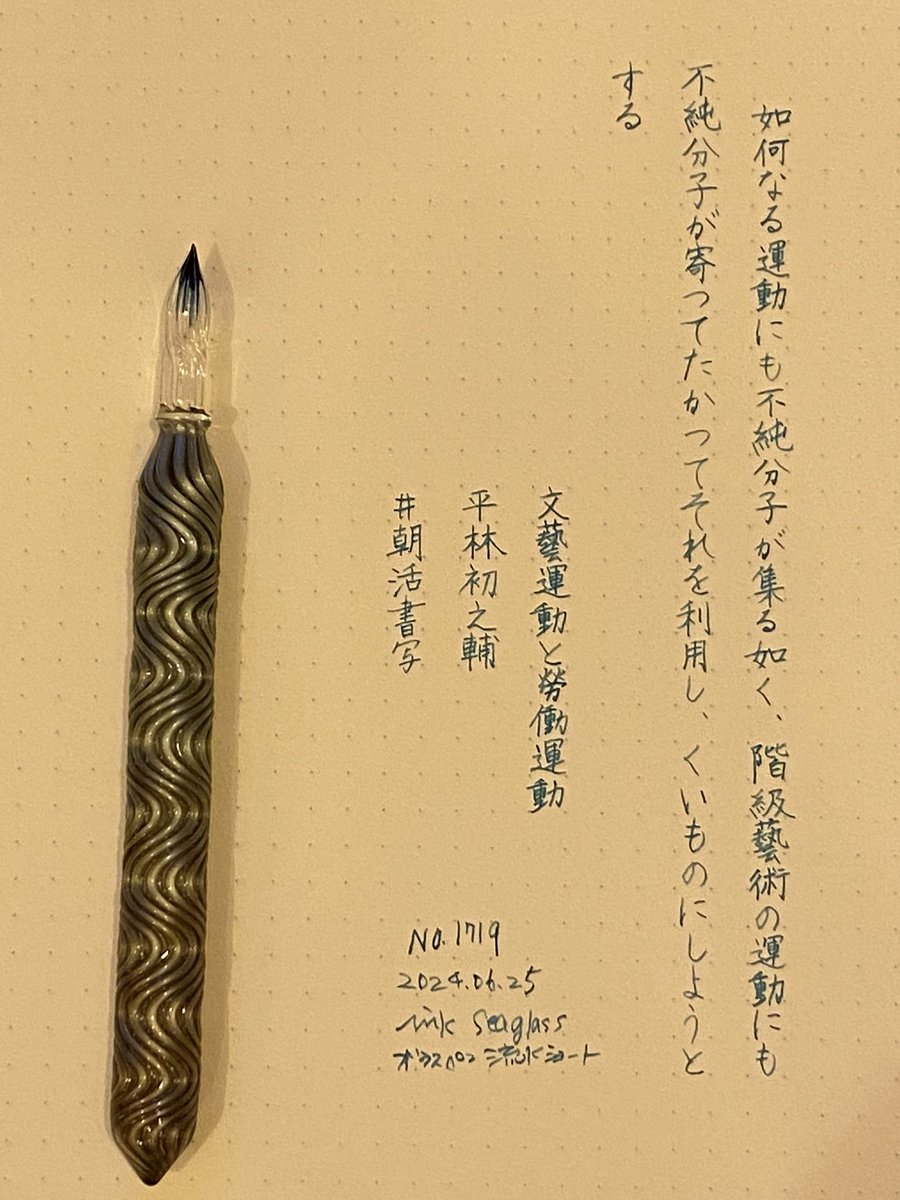 如何なる運動にも不純分子が集る如く、階級藝術の運動にも
不純分子が寄つてたかつてそれを利用し、くいものにしようと
する
文藝運動と勞働運動
平林初之輔
#朝活書写
NO.1719
2024.06.25
ink Seaglass
ガラスペン 流水ショート